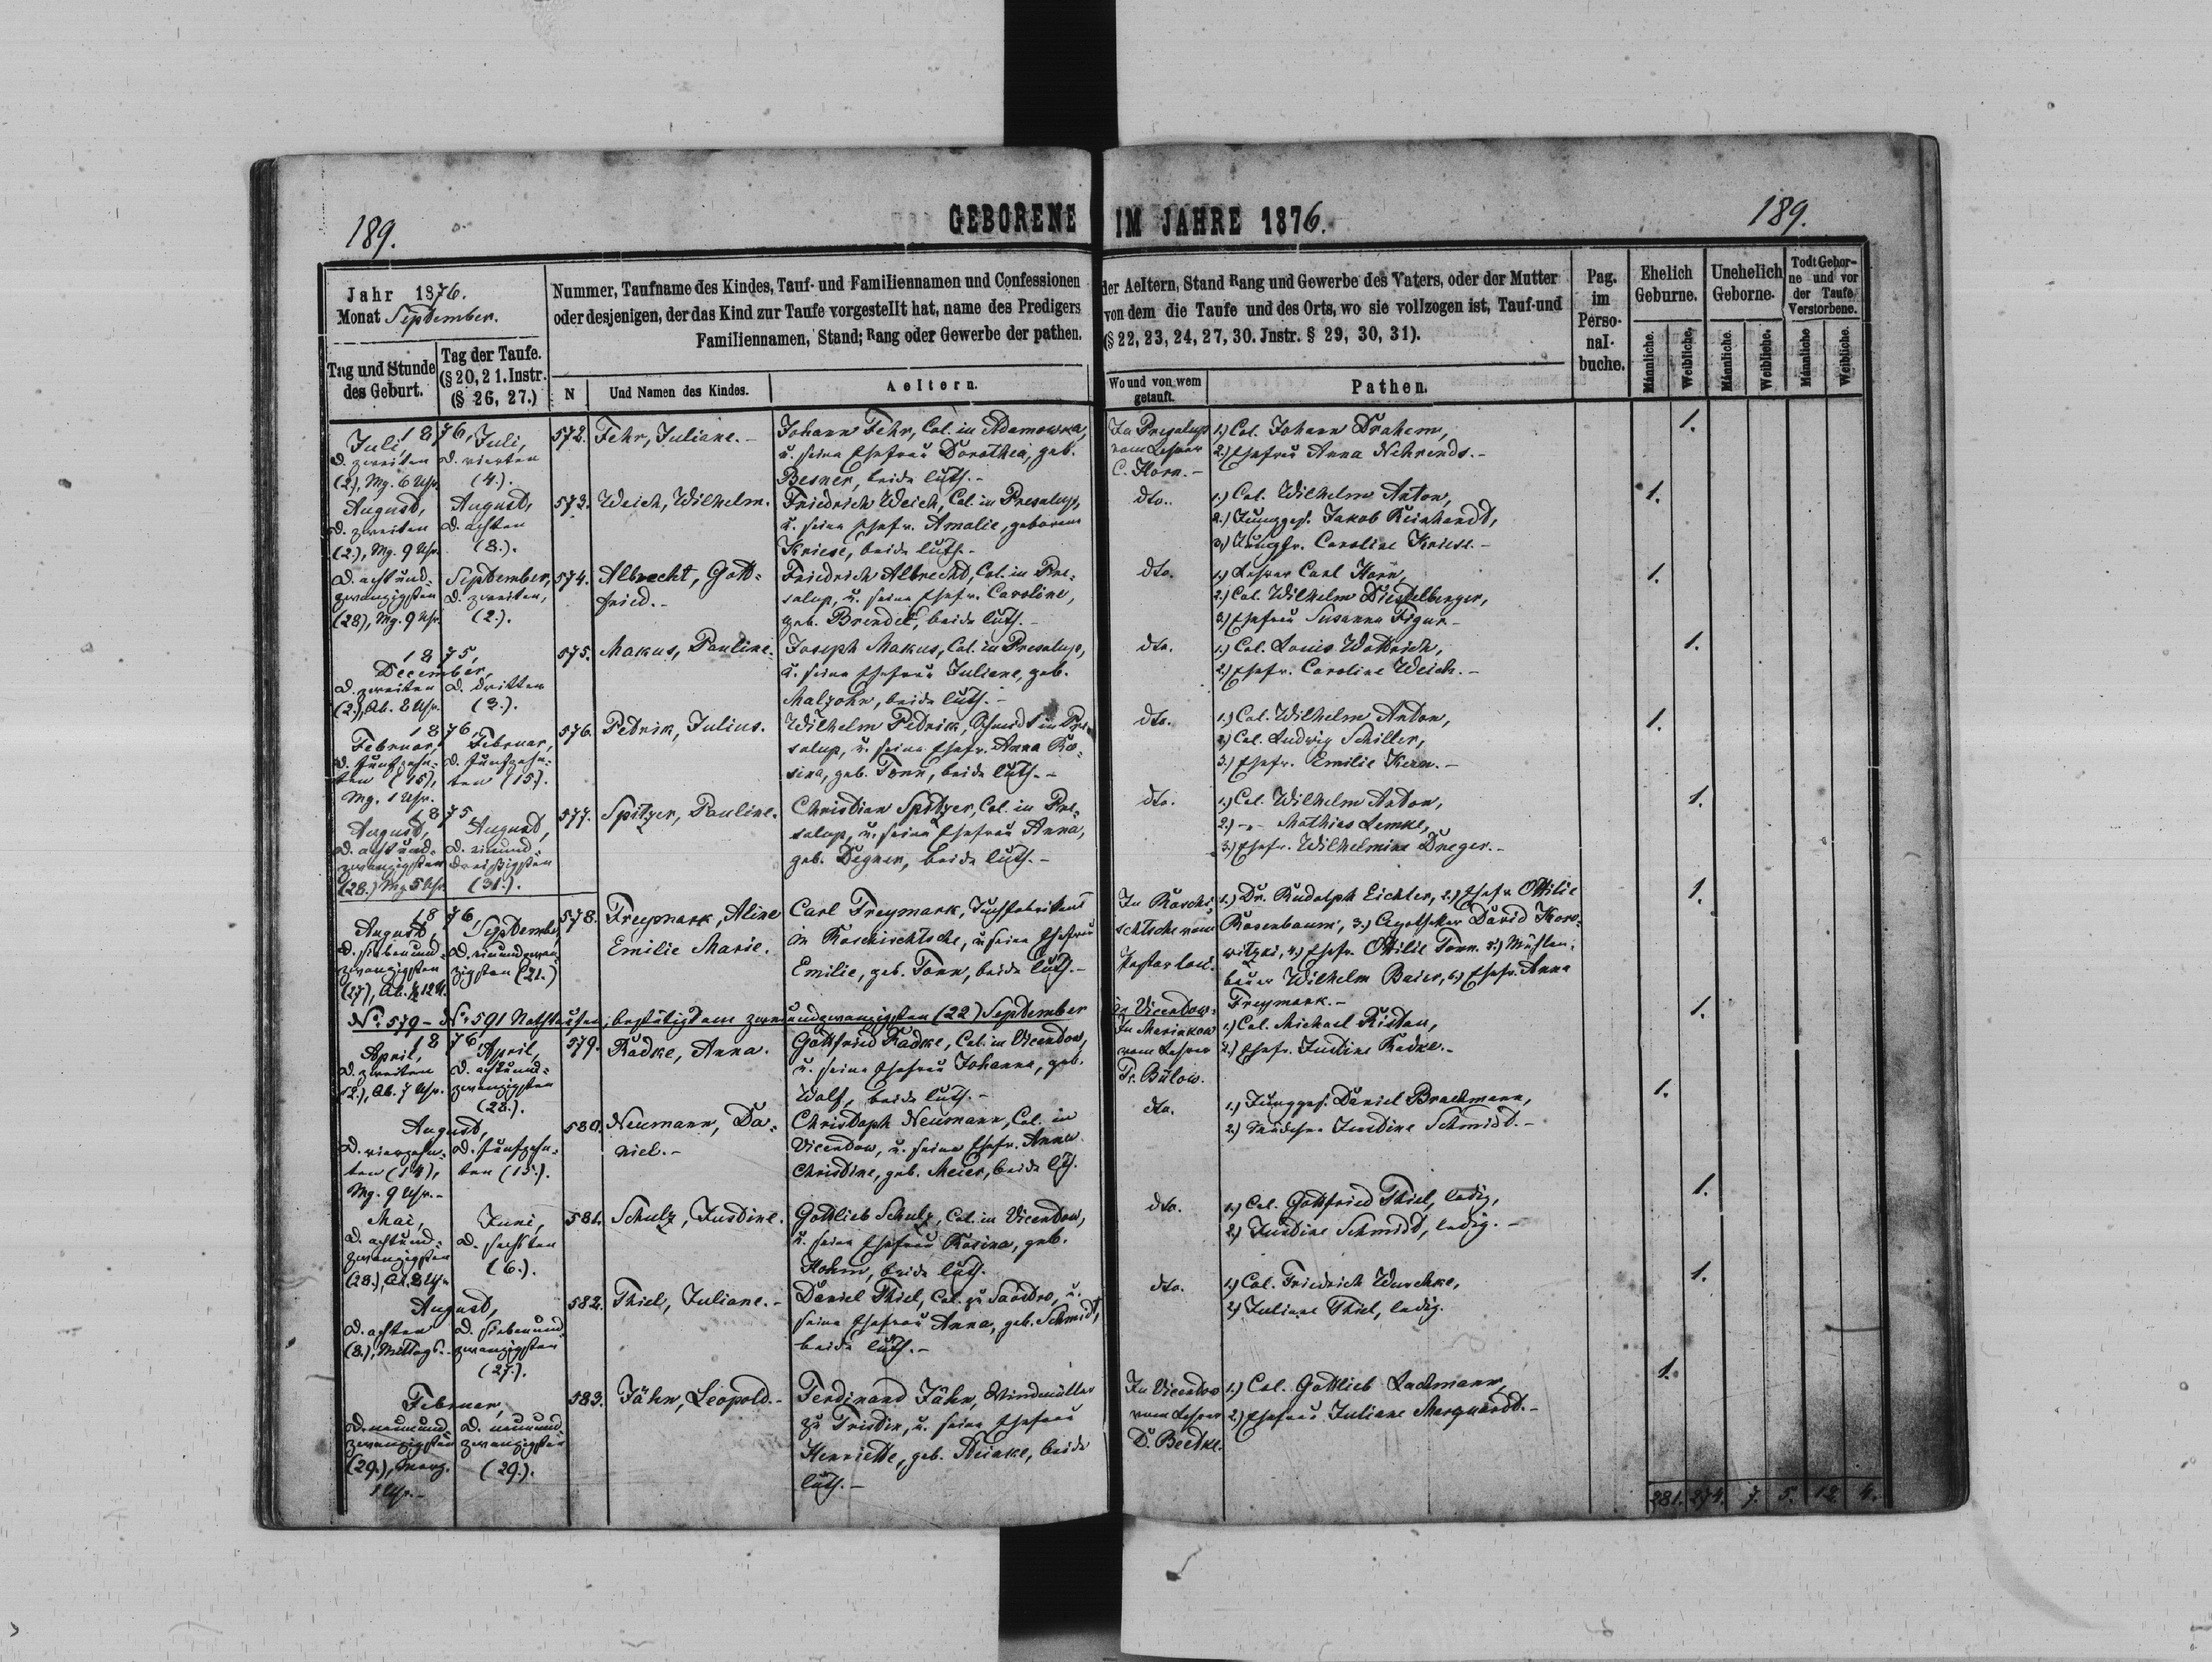 189.
GEBORENE IM JAHRE 1876.
189.
Jahr 1876.
Monat September.
Tag und Stunde
des Geburt.
Tag der Taufe.
(§ 20, 21. Instr.
(§ 26, 27.)
Nummer, Taufname des Kindes, Tauf- und Familiennamen und Confessionen
oder desjenigen, der das Kind zur Taufe vorgestellt hat, name des Predigers
Familiennamen, Stand; Rang oder Gewerbe der pathen.
N
Und Namen des Kindes.
Aeltern.
der Aeltern, Stand Rang und Gewerbe des Vaters, oder der Mutter
von dem die Taufe und des Orts, wo sie vollzogen ist, Tauf-und
(§ 22, 23, 24, 27, 30. Jnstr. § 29, 30, 31).
Wo und von wem
getauft.
Pathen.
Pag.
im
Perso-
nal-
buche.
Ehelich
Geburne.
Unehelich
Geborne.
Todt Gebor-
ne und vor
der Taufe
Verstorbene.
Männliche.
Weibliche.
Männliche.
Weibliche.
Männliche
Weibliche.
1876,
Juli,
d. zweiten
(2.), Mg. 6 Uhr.
Juli,
d. vierten
(4.).
572.
Fehr, Juliane.-
Johann Fehr, Col. in Adamowka,
u. seine Ehefrau Dorothea, geb.
Besner, beide luth.-
In Presalup
vom Lehrer
C. Horn.-
1.) Col. Johann Draham,
2.) Ehefrau Anna Nehrends.-
1.
August,
d. zweiten
(2.), Mg. 9 Uhr.
August,
d. achten
(8.).
573.
Weich, Wilhelm.
Friedrich Weich, Col. in Presalup,
u. seine Ehefr. Amalie, geborene
Kriese, beide luth.-
dto.
1.) Col. Wilhelm Anton,
2.) Jungges. Jakob Reinhardt,
3.) Jungfr. Caroline Kriese.-
1.
d. achtund-
zwanzigsten
(28), Mg. 9 Uhr.
September,
d. zweiten,
(2.).
574.
Albrecht, Gott-
fried.-
Friedrich Albrecht, Col. in Pre-
salup, u. seine Ehefr. Caroline,
geb. Brendel, beide luth.-
dto.
1.) Lehrer Carl Horn,
2.) Col. Wilhelm Diestelberger,
3.) Ehefrau Susanna Figur.-
1.
1875,
December,
d. zweiten
(2.), Ab. 8 Uhr.
d. dritten
(3.).
575.
Makus, Pauline.
Joseph Makus, Col. in Presalup,
u. seine Ehefrau Juliane, geb.
Maljohn, beide luth.-
dto.
1.) Col. Louis Wottrich,
2.) Ehefr. Caroline Weich.-
1.
1876,
Februar,
d. fünfzehn-
ten (15),
Mg. 1 Uhr.
Februar,
d. fünfzehn-
ten (15).
576.
Pedrik, Julius.
Wilhelm Pedrik, Schmidt in Pre-
salup, u. seine Ehefr. Anna Ro-
sina, geb. Tonn, beide luth.-
dto.
1.) Col. Wilhelm Anton,
2.) Col. Ludwig Schiller,
3.) Ehefr. Emilie Kern.-
1.
1875
August,
d. achtund-
zwanzigsten
(28.) Mg 5 Uhr.
August,
d. einund-
dreißigsten
(31.).
577.
Spitzer, Pauline.
Christian Spitzer, Col. in Pre-
salup, u. seine Ehefrau Anna,
geb. Degner, beide luth.-
dto.
1.) Col. Wilhelm Anton,
2.) -"- Mathias Lemke,
3.) Ehefr. Wilhelmine Dreger.-
1.
1876,
August,
d. siebenund-
zwanzigsten
(27), Ab. ½ 12 U.
September
d. einundzwan-
zigsten (21.)
578.
Freymark, Aline
Emilie Marie.
Carl Freymark, Tuchfabrikant
in Koschischtsche, u. seine Ehefrau
Emilie, geb. Tonn, beide luth.-
In Koschi-
schtsche vom
Pastor loci.
1.) Dr. Rudolph Eichler, 2.) Ehefr. Ottilie
Rosenbaum, 3.) Apotheker David Koro-
witzki, 4.) Ehefr. Ottilie Tonn. 5.) Mühlen-
bauer Wilhelm Baier, 6.) Ehefr. Anna
Freymark.-
1.
No. 579 - No. 591 Nothtaufen, bestätigt am zweiundzwanzigsten (22) September
in Vicentow.
1876,
April,
d. zweiten
(2.), Ab. 7 Uhr.
April,
d. achtund-
zwanzigsten
(28.).
579.
Radke, Anna.
Gottfried Radke, Col. in Vicentow,
u. seine Ehefrau Johanna, geb.
Wolf, beide luth.-
In Marinkow
vom Lehrer
Fr. Bülow.
1.) Col. Michael Ristau,
2.) Ehefr. Justine Radke.-
1.
August,
d. vierzehn-
ten (14),
Mg. 9 Uhr.-
d. fünfzehn-
ten (15.).
580.
Neumann, Da-
niel.-
Christoph Neumann, Col. in
Vicentow, u. seine Ehefr. Anna
Christine, geb. Meier, beide lth.
dto.
1.) Jungges. Daniel Brachmann,
2.) Mädchen Justine Schmidt.-
1.
Mai,
d. achtund-
zwanzigsten
(28.), Ab. 8 Uhr
Juni,
d. sechsten
(6.).
581.
Schulz, Justine.
Gottlieb Schulz, Col. in Vicentow,
u. seine Ehefrau Rosina, geb.
Hohm, beide luth.
dto.
1.) Col. Gottfried Thiel, ledig,
2.) Justine Schmidt, ledig.-
1.
August,
d. achten
(8.), Mittags.
d. siebenund-
zwanzigsten
(27.).
582.
Thiel, Juliane.-
Daniel Thiel, Col. zu Saostro, u.
seine Ehefrau Anna, geb. Schmidt,
beide luth.-
dto.
1.) Col. Friedrich Wuschke,
2.) Juliane Thiel, ledig.
1.
Februar,
d. neunund-
zwanzigsten
(29.), Morg.
1 Uhr.-
d. neunund-
zwanzigsten
(29.).
583.
Jähn, Leopold.-
Ferdinand Jähn, Windmüller
zu Tristin, u. seine Ehefrau
Henriette, geb. Reinke, beide
luth.-
In Vicentow
vom Lehrer
D. Beedke.
1.) Col. Gottlieb Lachmann,
2.) Ehefrau Juliane Marquardt.-
1.
281. 274. 7. 5. 12. 4.